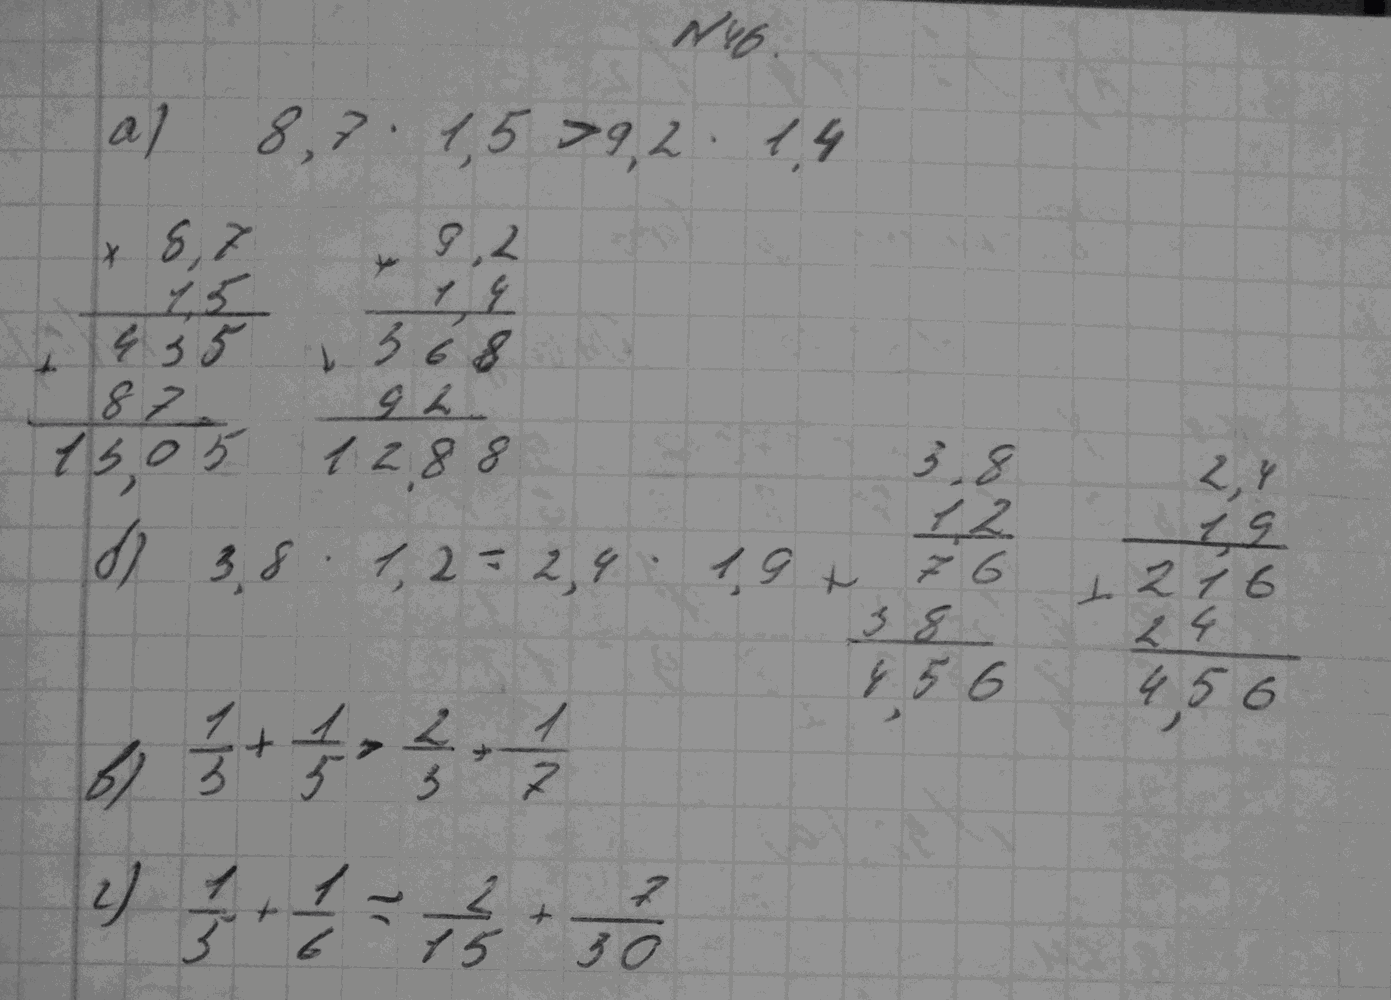 №46.
а) 8,7 · 1,5 > 9,2 · 1,4
× 8,7
1,5
+ 435
87
13,05
× 9,2
1,4
+ 368
92
12,88
б) 3,8 · 1,2 = 2,4 · 1,9
3,8
1,2
+ 76
38
4,56
2,4
1,9
+ 216
24
4,56
в) 1/3 + 1/5 > 2/3 + 1/7
г) 1/5 + 1/6 = 2/15 + 7/30